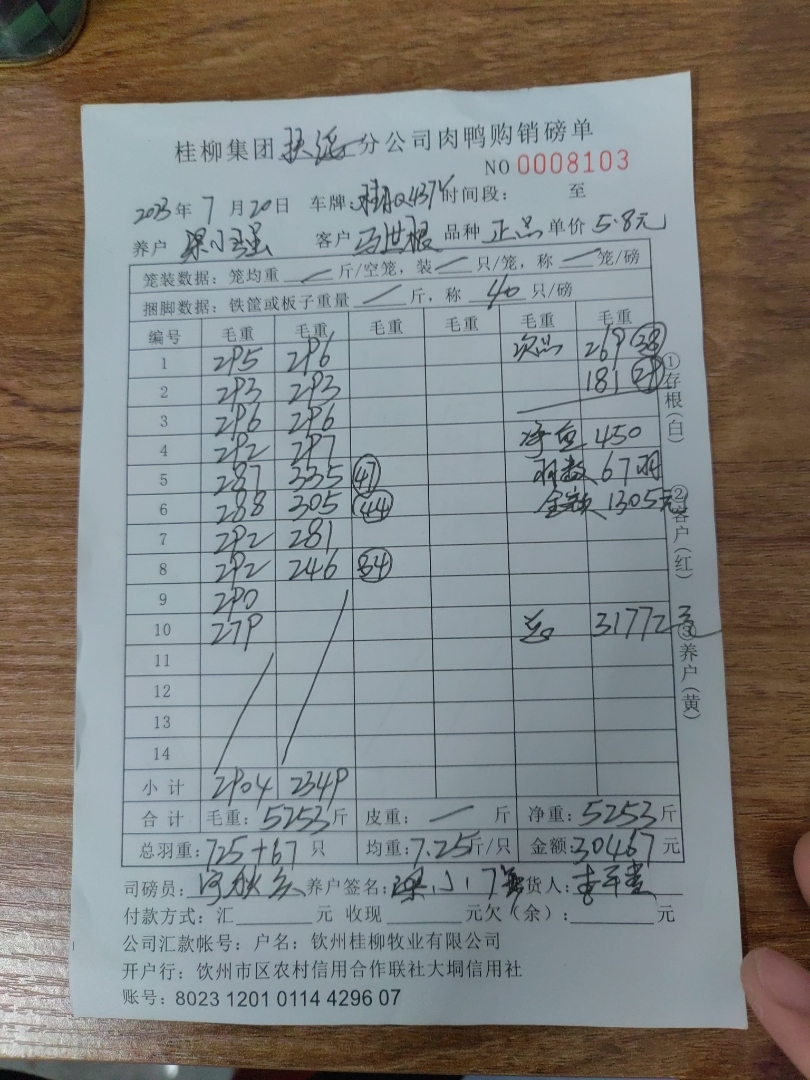 桂柳集团扶绥分公司肉鸭购销磅单
NO 0008103
2023年7月20日 车牌: 时间段： 至
养户 客户 马世根 品种 正品 单价 5.8元
笼装数据：笼均重 — 斤/空笼，装 — 只/笼，称 — 笼/磅
捆脚数据：铁筐或板子重量 — 斤，称 40 只/磅
编号 毛重 毛重 毛重 毛重 毛重 毛重
1 295 296 次品 269 38
2 293 293 181 29
3 296 296
4 292 297 净重 450
5 287 335 47 羽数 67羽
6 288 305 44 金额 1305元
7 292 281
8 292 246 34
9 290
10 279 总 31772元
11
12
13
14
小计 2904 2349
合计 毛重：5253斤 皮重：— 斤 净重：5253斤
总羽重：725+67只 均重：7.25斤/只 金额：30467元
司磅员： 养户签名： 货人：
付款方式：汇 元 收现 元欠（余）： 元
公司汇款帐号：户名：钦州桂柳牧业有限公司
开户行：钦州市区农村信用合作联社大垌信用社
账号：8023 1201 0114 4296 07
①存根（白）
②客户（红）
③养户（黄）